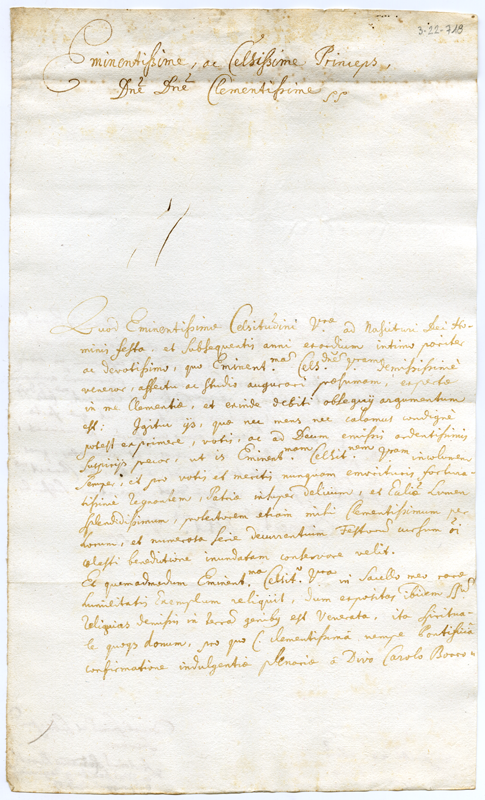 3-22-719
Eminentissime, ac Celsissime Princeps,
Dne Dne Clementissime
Quod Eminentissimæ Celsitudini Vræ ad Nascituri Dei Ho-
minis festa, et subsequentis anni exordium intimo pariter
ac devotissimo, quo Eminent.mas Cels.dnes demississimè
veneror, affectu ac studio augurari possumam, expecto
in me Clementia, et exinde debiti obsequij argumentum
est: Igitur ijs, quæ nec mens nec calamus condignè
potest exprimere, votis, ac ad Deum emissis ardentissimis
suspirijs precor, ut is Eminent.mam Celsit.nem Vram incolumem
semper, et pro votis et meritis nunquam emorituris fortuna-
tissimè regnantem, Patriæ integer delicium, et Eccliæ Lumen
splendidissimum, protectorem etiam mihi Clementissimum per
longam, et numerosa serie decurrentium Festorum cursum oi
cælesti benedictione inundatam conservare velit.
Et quemadmodum Eminent.ma Celsit.do Vra in Sacello meo raræ
humilitatis Exemplum reliquit, dum expositas ibidem SS.
reliquias demissis in terra genubus est Venerata, ita spiritua-
le quoque donum, pro quo Clementissima nempe Pontificia
confirmatione indulgentiæ plenariæ à Divo Carolo Borro-